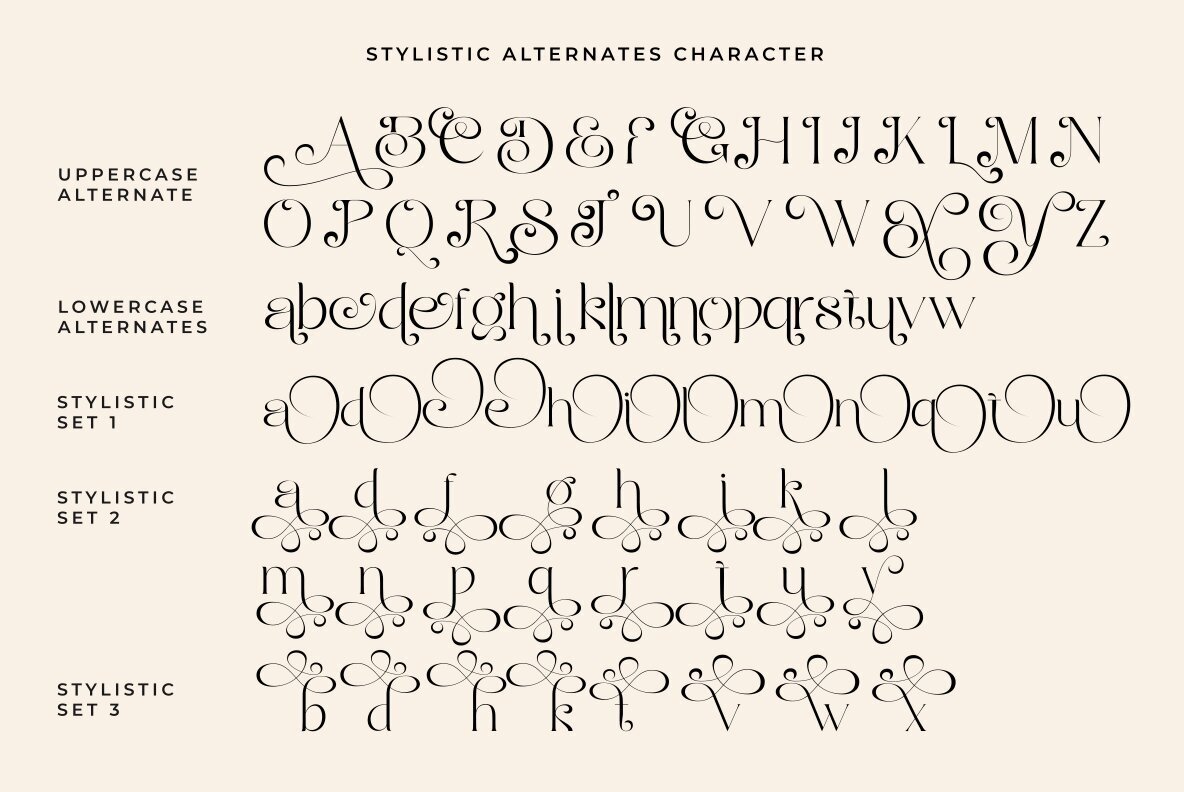 STYLISTIC ALTERNATES CHARACTER
UPPERCASE
ALTERNATE
A B C D E F G H I J K L M N
O P Q R S T U V W X Y Z
LOWERCASE
ALTERNATES
a b c d e f g h i k l m n o p q r s t u v w
STYLISTIC
SET 1
a d c e h i l m n q t u
STYLISTIC
SET 2
a d f g h i k l
m n p q r t u v
STYLISTIC
SET 3
b d h k t v w x